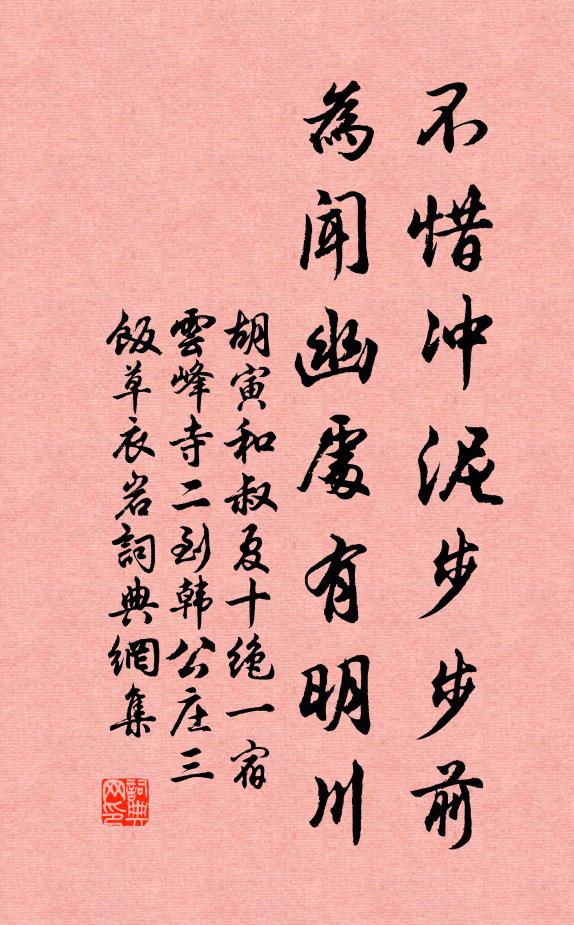 不惜冲泥步步前
為聞幽處有明川
胡寅和叔夏十绝一宿
雲峰寺二到韩公庄三
飯草衣岩詞典網集
詞典网印